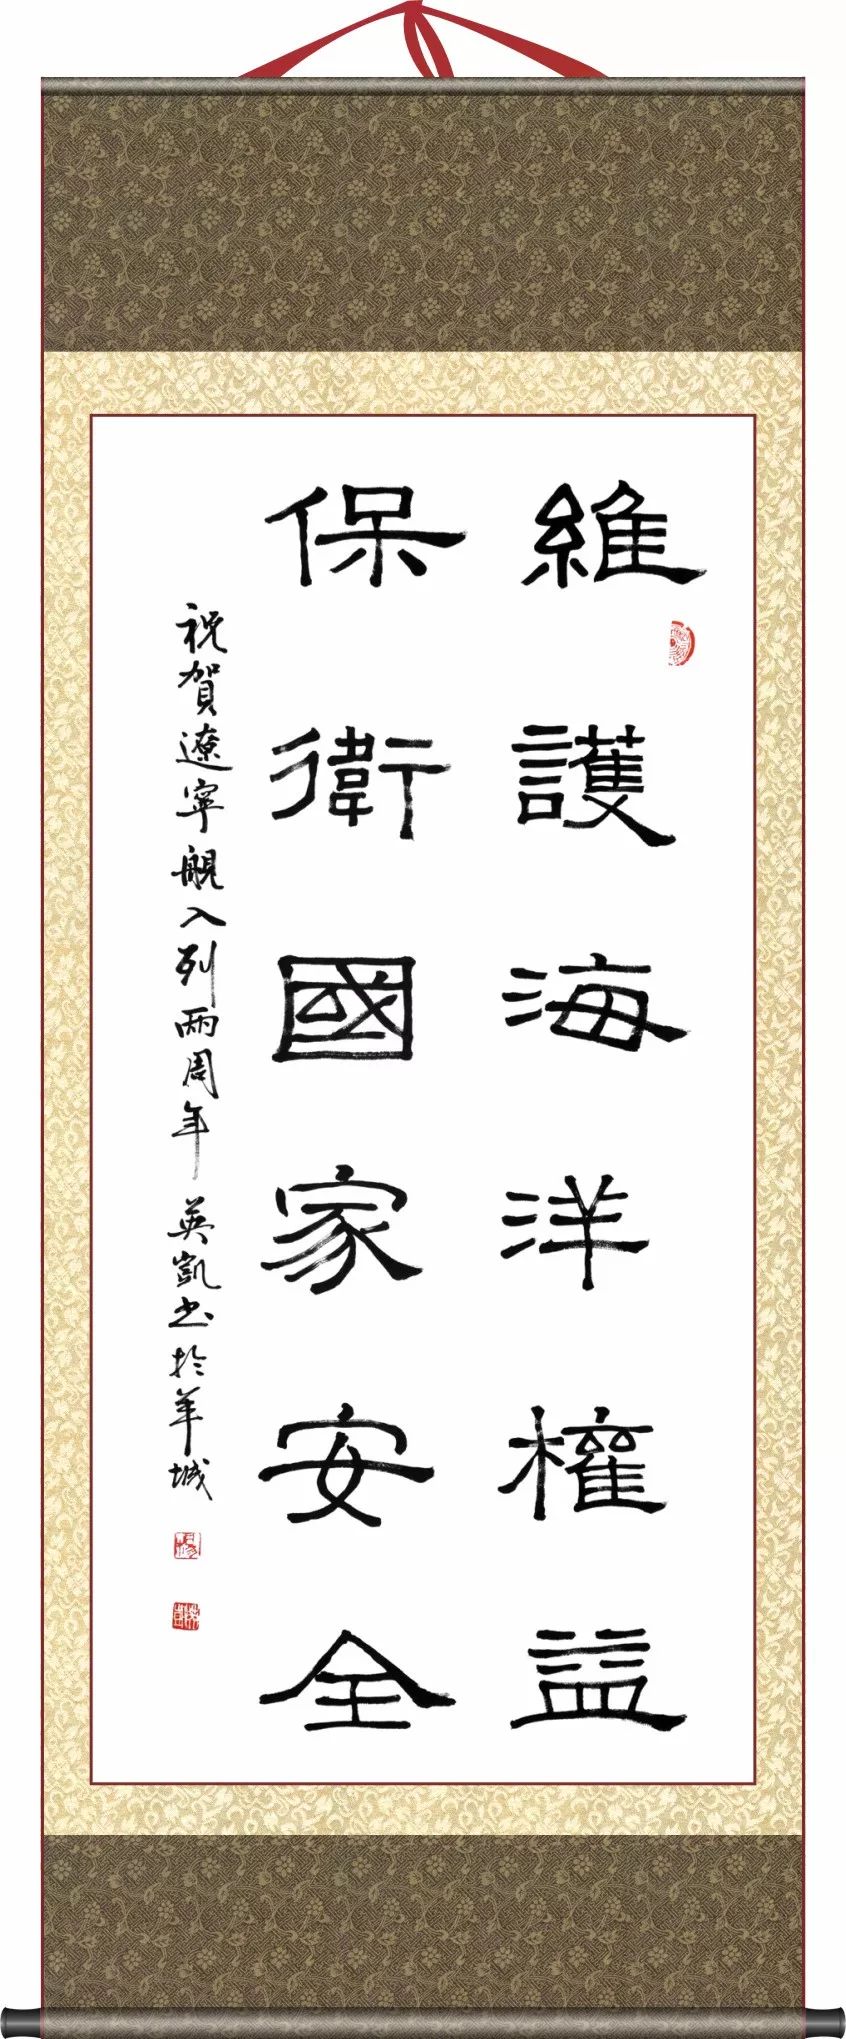 維護海洋權益
保衛國家安全
祝賀遼寧艦入列兩周年 英凱书於羊城